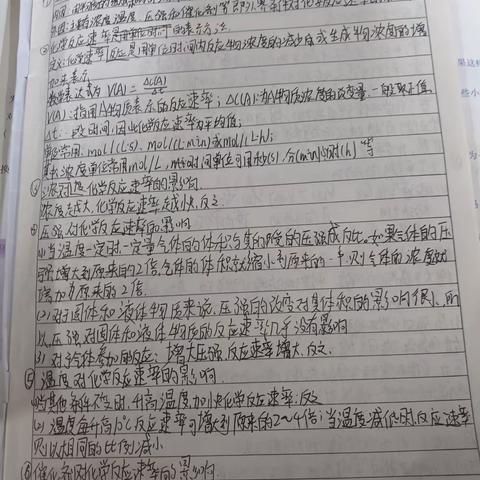 外因：主要有浓度、温度、压强和催化剂等
②化学反应速率的表示方法.
定义：化学反应速率是用单位时间内反应物浓度的减少或生成物浓度的增
加来表示
数学表达式为 V(A) = Δc(A)/Δt
V(A)：指用A物质表示的反应速率；Δc(A)：为A物质浓度的改变量，一般取正值，
Δt：一段时间，因此化学反应速率为平均值；
单位常用：mol/(L·s)、mol/(L·min)或mol/(L·h)；
其中浓度单位常用mol/L，时间单位可用秒(s)，分(min)、小时(h)等
③浓度对化学反应速率的影响.
浓度越大，化学反应速率越快，反之
④压强对化学反应速率的影响
(1)当温度一定时，一定量气体的体积与其所受的压强成反比。如果气体的压
强增大到原来的2倍，气体的体积就缩小到原来的一半，则气体的浓度就
增加为原来的2倍.
(2)对于固体和液体物质来说，压强的改变对其体积的影响很小，所
以，压强对固体和液体物质的反应速率几乎没有影响
(3)对气体参加的反应：增大压强，反应速率增大，反之.
⑤温度对化学反应速率的影响.
(1)当其他条件不变时，升高温度，加快化学反应速率；反之
(2)温度每升高10℃反应速率可增大到原来的2~4倍；当温度减低时，反应速率
则以相同的比例减小
⑥催化剂对化学反应速率的影响.
果这样
些小
换